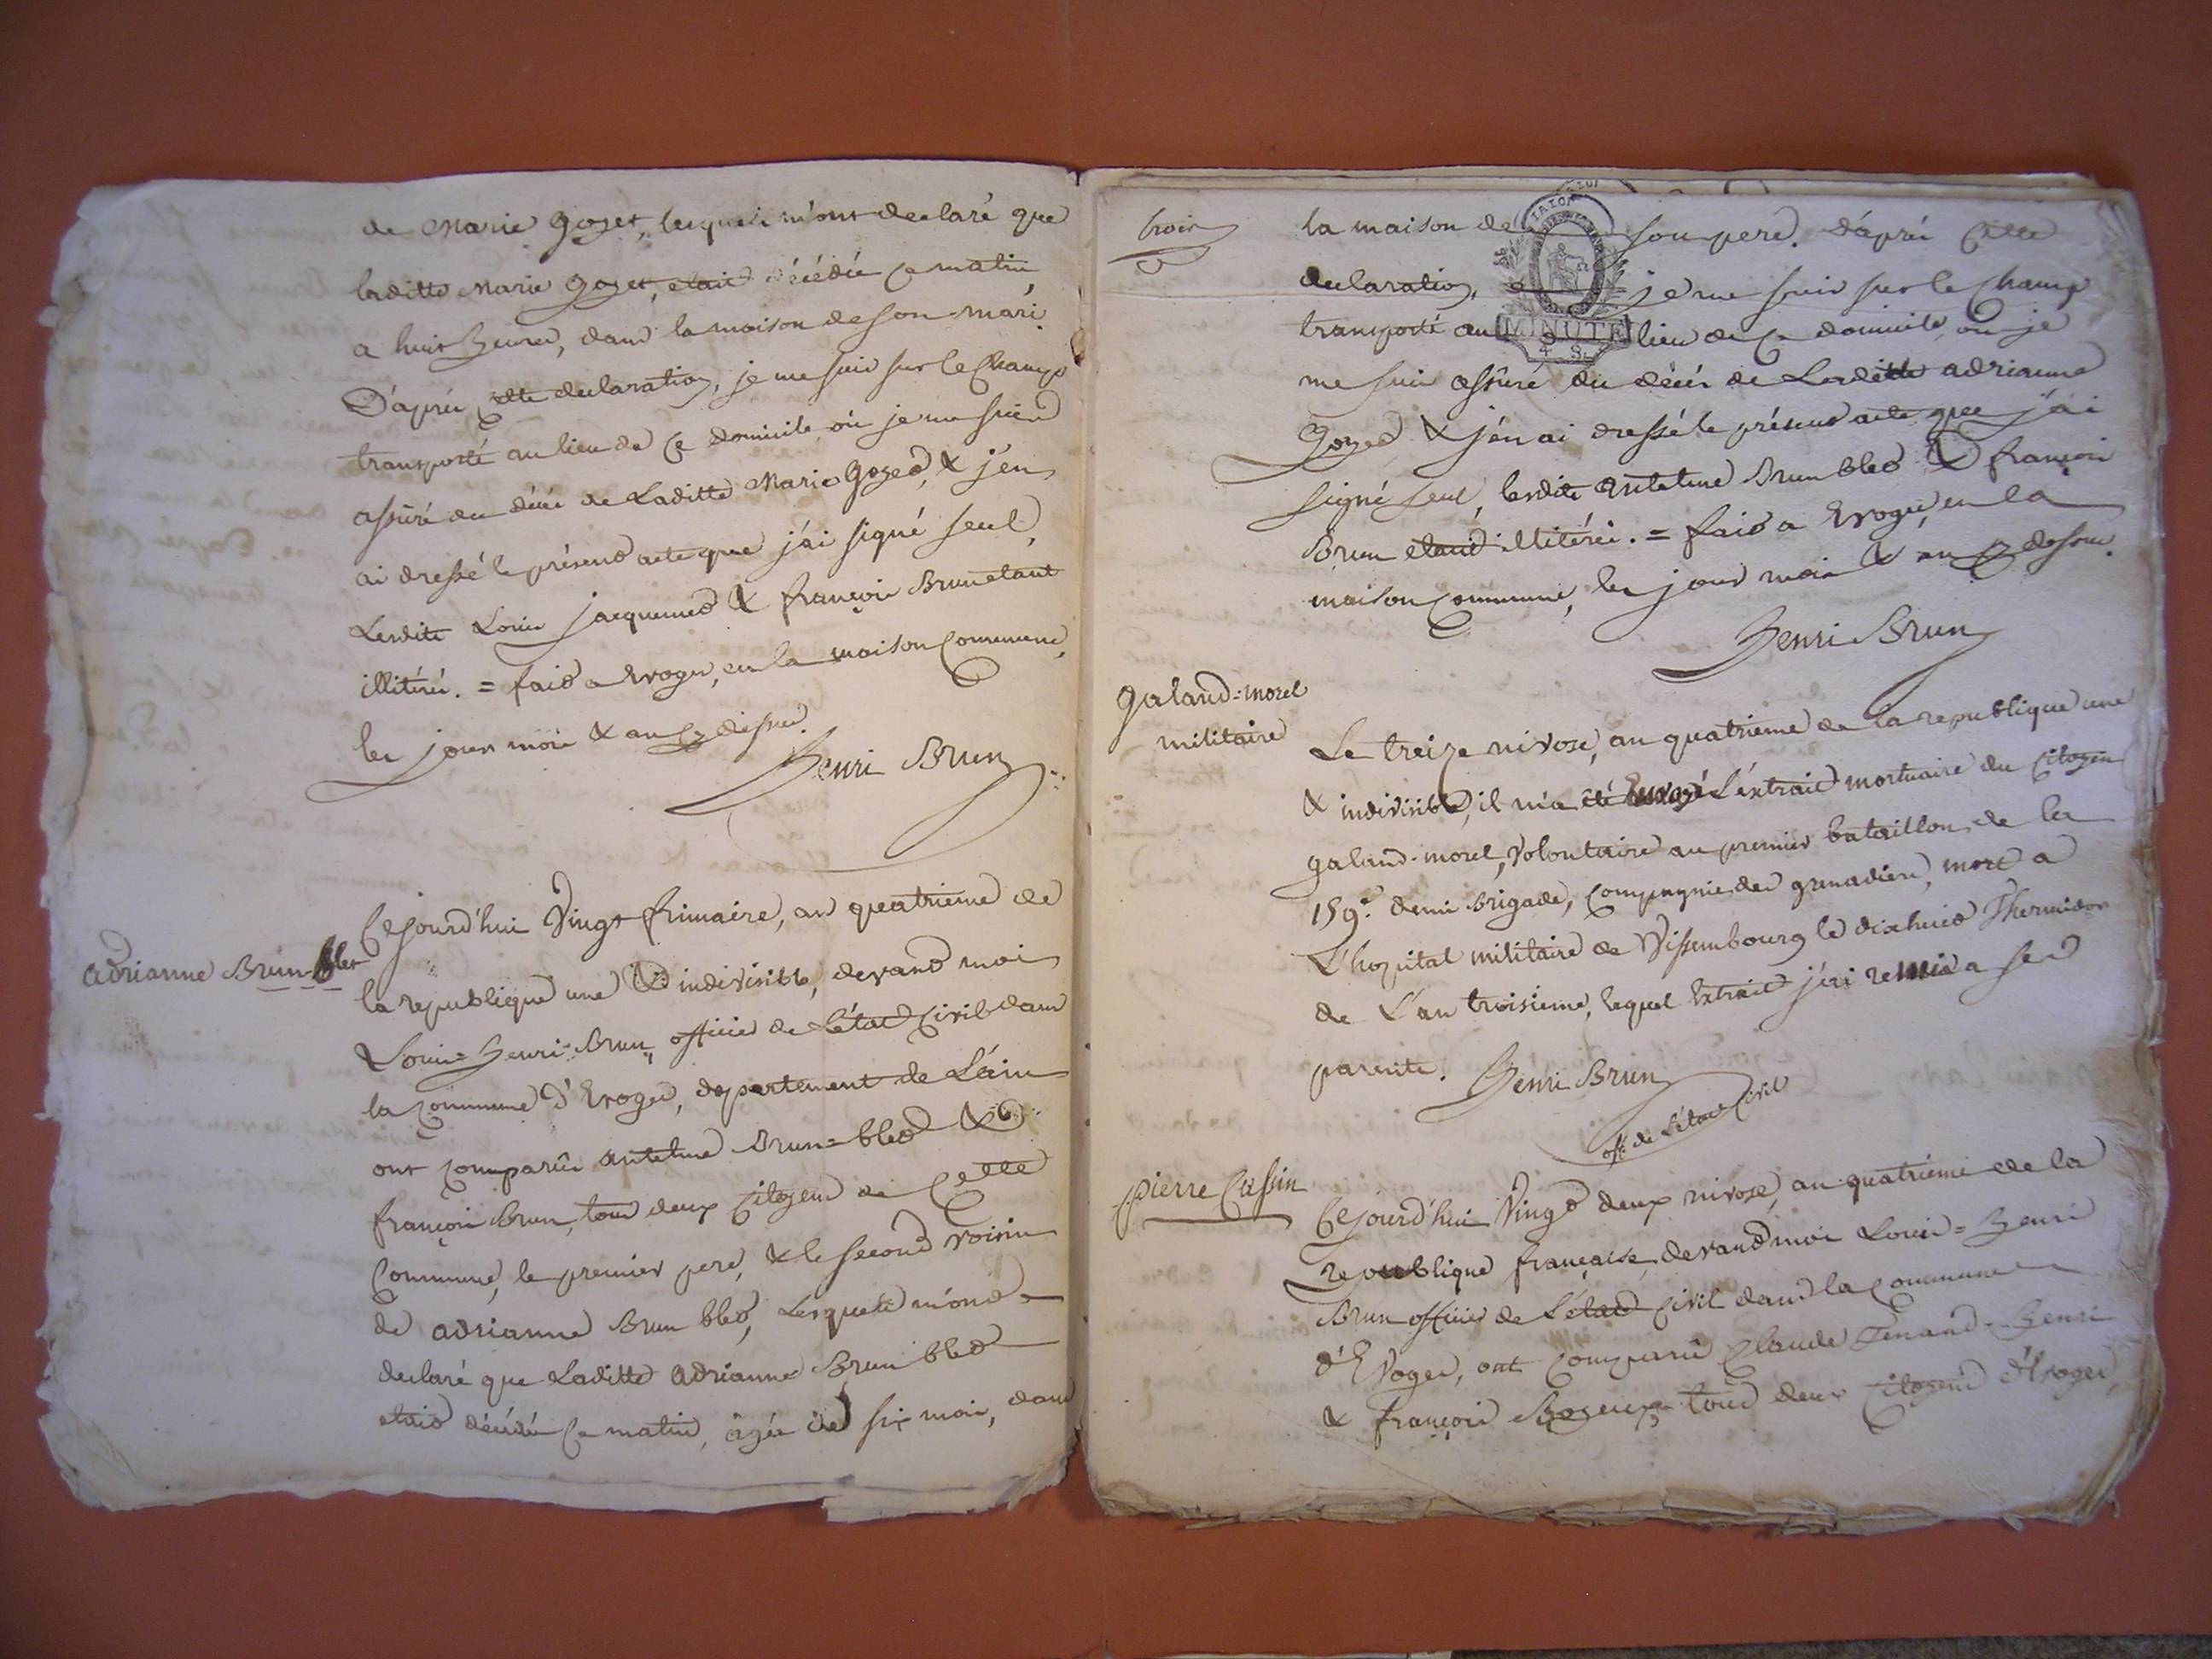 de Marie Goyet, lesquels m'ont declaré que
laditte Marie Goyet, etait décédée ce matin
a huit heures, dans la maison de son mari.
D'après cette declaration, je me suis sur le champ
transporté au lieu de ce domicile où je me suis
assûré du décès de Laditte Marie Goyet, & j'en
ai dressé le présent acte que j'ai signé seul,
Lesdits Louis Jacquemet & françois Brun etant
illitérés. = fait a Evoges, en la maison Commune,
les jour mois & an cy dessus.
Henri Brun
Adrianne Brun-blet
Cejourd'hui Vingt frimaire, an quatrieme de
la republique une & indivisible, devant moi
Louis=henri=Brun officier de L'état Civil dans
la Commune d'Evoges, departement de L'ain
ont comparûs antelme Brun=blet &
françois Brun, tous deux Citoyens de Cette
Commune, le premier pere, & le second voisin
de adrianne Brun blet, Lesquels m'ont
declaré que Laditte Adrianne Brun blet
etait décédée ce matin, âgée de six mois, dans
trois
la maison de son pere. d'après Cette
declaration, je me suis sur le champ
MINUTE
transporté au lieu de ce domicile où je
me suis assûré du décès de Laditte adrianne
Goyet & j'en ai dressé le présent acte que j'ai
signé seul, lesdits antelme Brun blet & françois
Brun etant illitérés. = fait a Evoges, en la
maison commune, les jour mois & an cy dessus.
Henri Brun
Galand=morel
militaire
Le treize nivose, an quatrieme de la republique une
& indivisible, il m'a été Envoyé L'extrait mortuaire du Citoyen
galand-morel, Volontaire au premier bataillon de la
159e. demi Brigade, Compagnie des grenadiers, mort a
L'hopital militaire de Vissembourg le dixhuit Thermidor
de L'an troisieme, lequel Extrait j'ai remis a ses
parents. Henri Brun
off. de L'état Civil
pierre Cassin
Cejourd'hui Vingt deux nivose, an quatrieme de la
republique française, devant moi Louis=henri
Brun officier de L'état Civil dans la Commune
d'Evoges, ont comparû Claude Tenand-henri
& françois tous deux Citoyens d'Evoges,